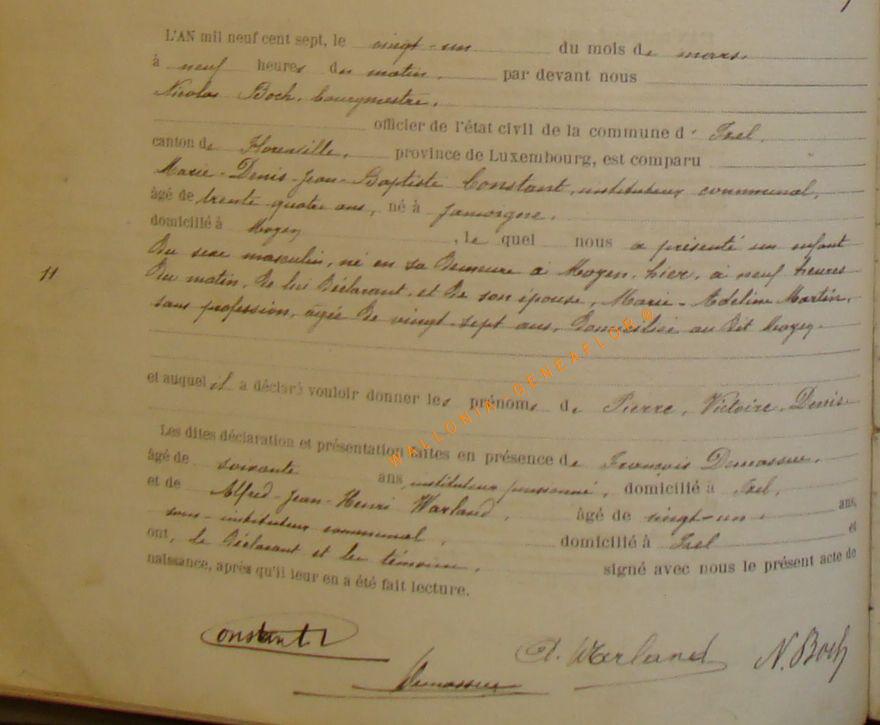 L'AN mil neuf cent sept, le vingt-un du mois de mars
à neuf heures du matin, par devant nous
Nicolas Boch, bourgmestre,
officier de l'état civil de la commune d' Izel,
canton de Florenville, province de Luxembourg, est comparu
Marie-Denis-Jean-Baptiste Constant, instituteur communal,
âgé de trente-quatre ans, né à Jamoigne,
domicilié à Moyen, le quel nous a présenté un enfant
11
du sexe masculin, né en sa demeure à Moyen, hier, à neuf heures
du matin, de lui déclarant, et de son épouse, Marie-Adeline Martin,
sans profession, âgée de vingt-sept ans, domiciliée au dit Moyen.
et auquel il a déclaré vouloir donner les prénoms de Pierre, Victoire, Denis
Les dites déclaration et présentation faites en présence de François Demasser,
âgé de soixante ans, instituteur pensionné, domicilié à Izel,
et de Alfred-Jean-Henri Warland, âgé de vingt-un ans,
sous-instituteur communal, domicilié à Izel et
ont, le déclarant et les témoins, signé avec nous le présent acte de
naissance, après qu'il leur en a été fait lecture.
Constant
A. Warland
N. Boch
WALLONIA GENEAFLOR©